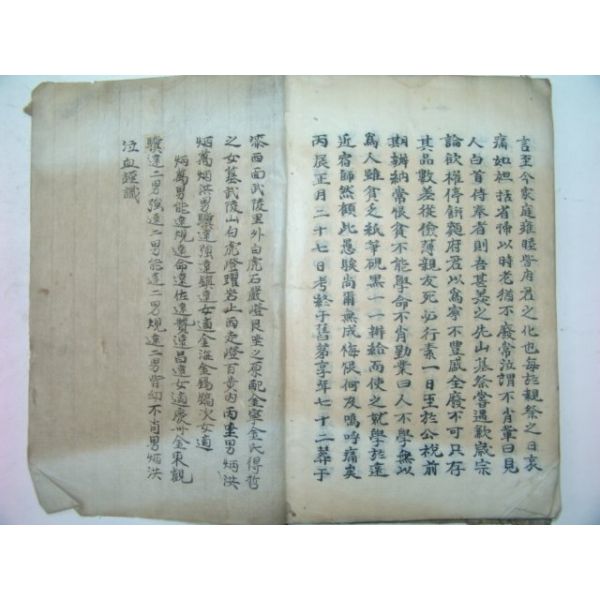 言至今家庭雍睦皆府君之化也每於親祭之日哀
痛如袒括省掃以時老猶不廢常泣謂不肖輩曰見
人白首侍奉者則吾甚羨之先山墓祭嘗遇歉歲宗
論欲權停餅麵府君以爲寧不豊盛全廢不可只存
其品數差從儉薄親友死必行素一日至於公稅前
期辦納常恨貧不能學命不肖勤業曰人不學無以
爲人雖貧乏紙筆硯墨一一辦給而使之就學於遠
近宿師然顧此愚騃尚爾無成悔恨何及嗚呼痛矣
丙辰正月二十七日考終于舊第享年七十二葬于
漆西面武陵里外白虎石嚴嶝艮坐之原配金寧金氏得哲
之女墓武陵山白虎嶝躍岩上西走嶝百黃內酉坐男炳洪
炳萬炳洪男驥達強達鎭達女適金海金錫 次女適
炳萬男能達規達命達佐達贊達昌達女適慶州金東觀
驥達二男強達二男能達二男規達二男皆幼不肖男炳洪
泣血謹識